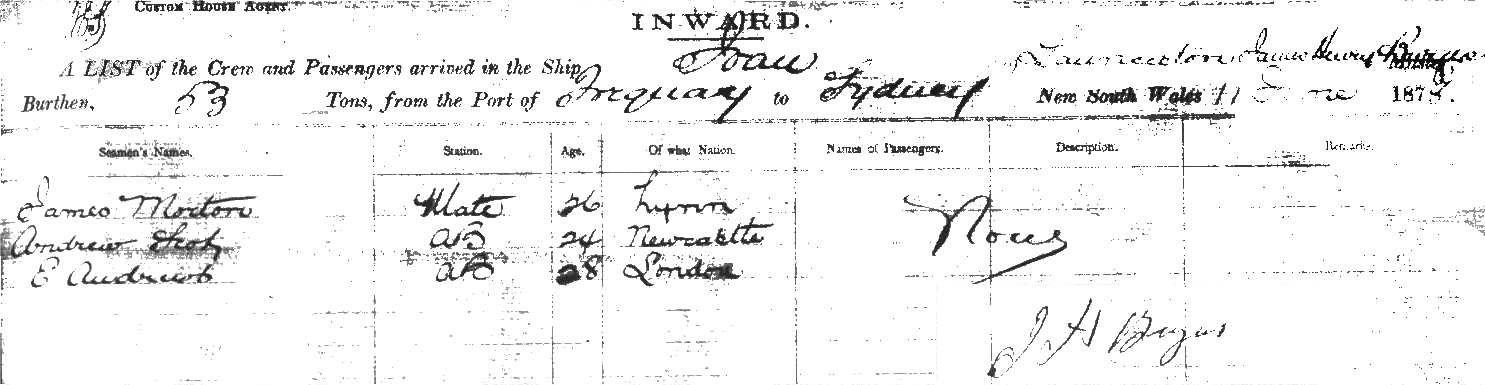 CUSTOM HOUSE AGENT.
INWARD.
A LIST of the Crew and Passengers arrived in the Ship Joan Launceston James Henry
Burthen, 53 Tons, from the Port of to Sydney New South Wales 11 June 187
Seamen's Names. Station. Age. Of what Nation. Names of Passengers. Description. Remarks.
James Morton Mate 26 Lynn None
Andrew AB 24 Newcastle
E Andrews AB 28 London
J H